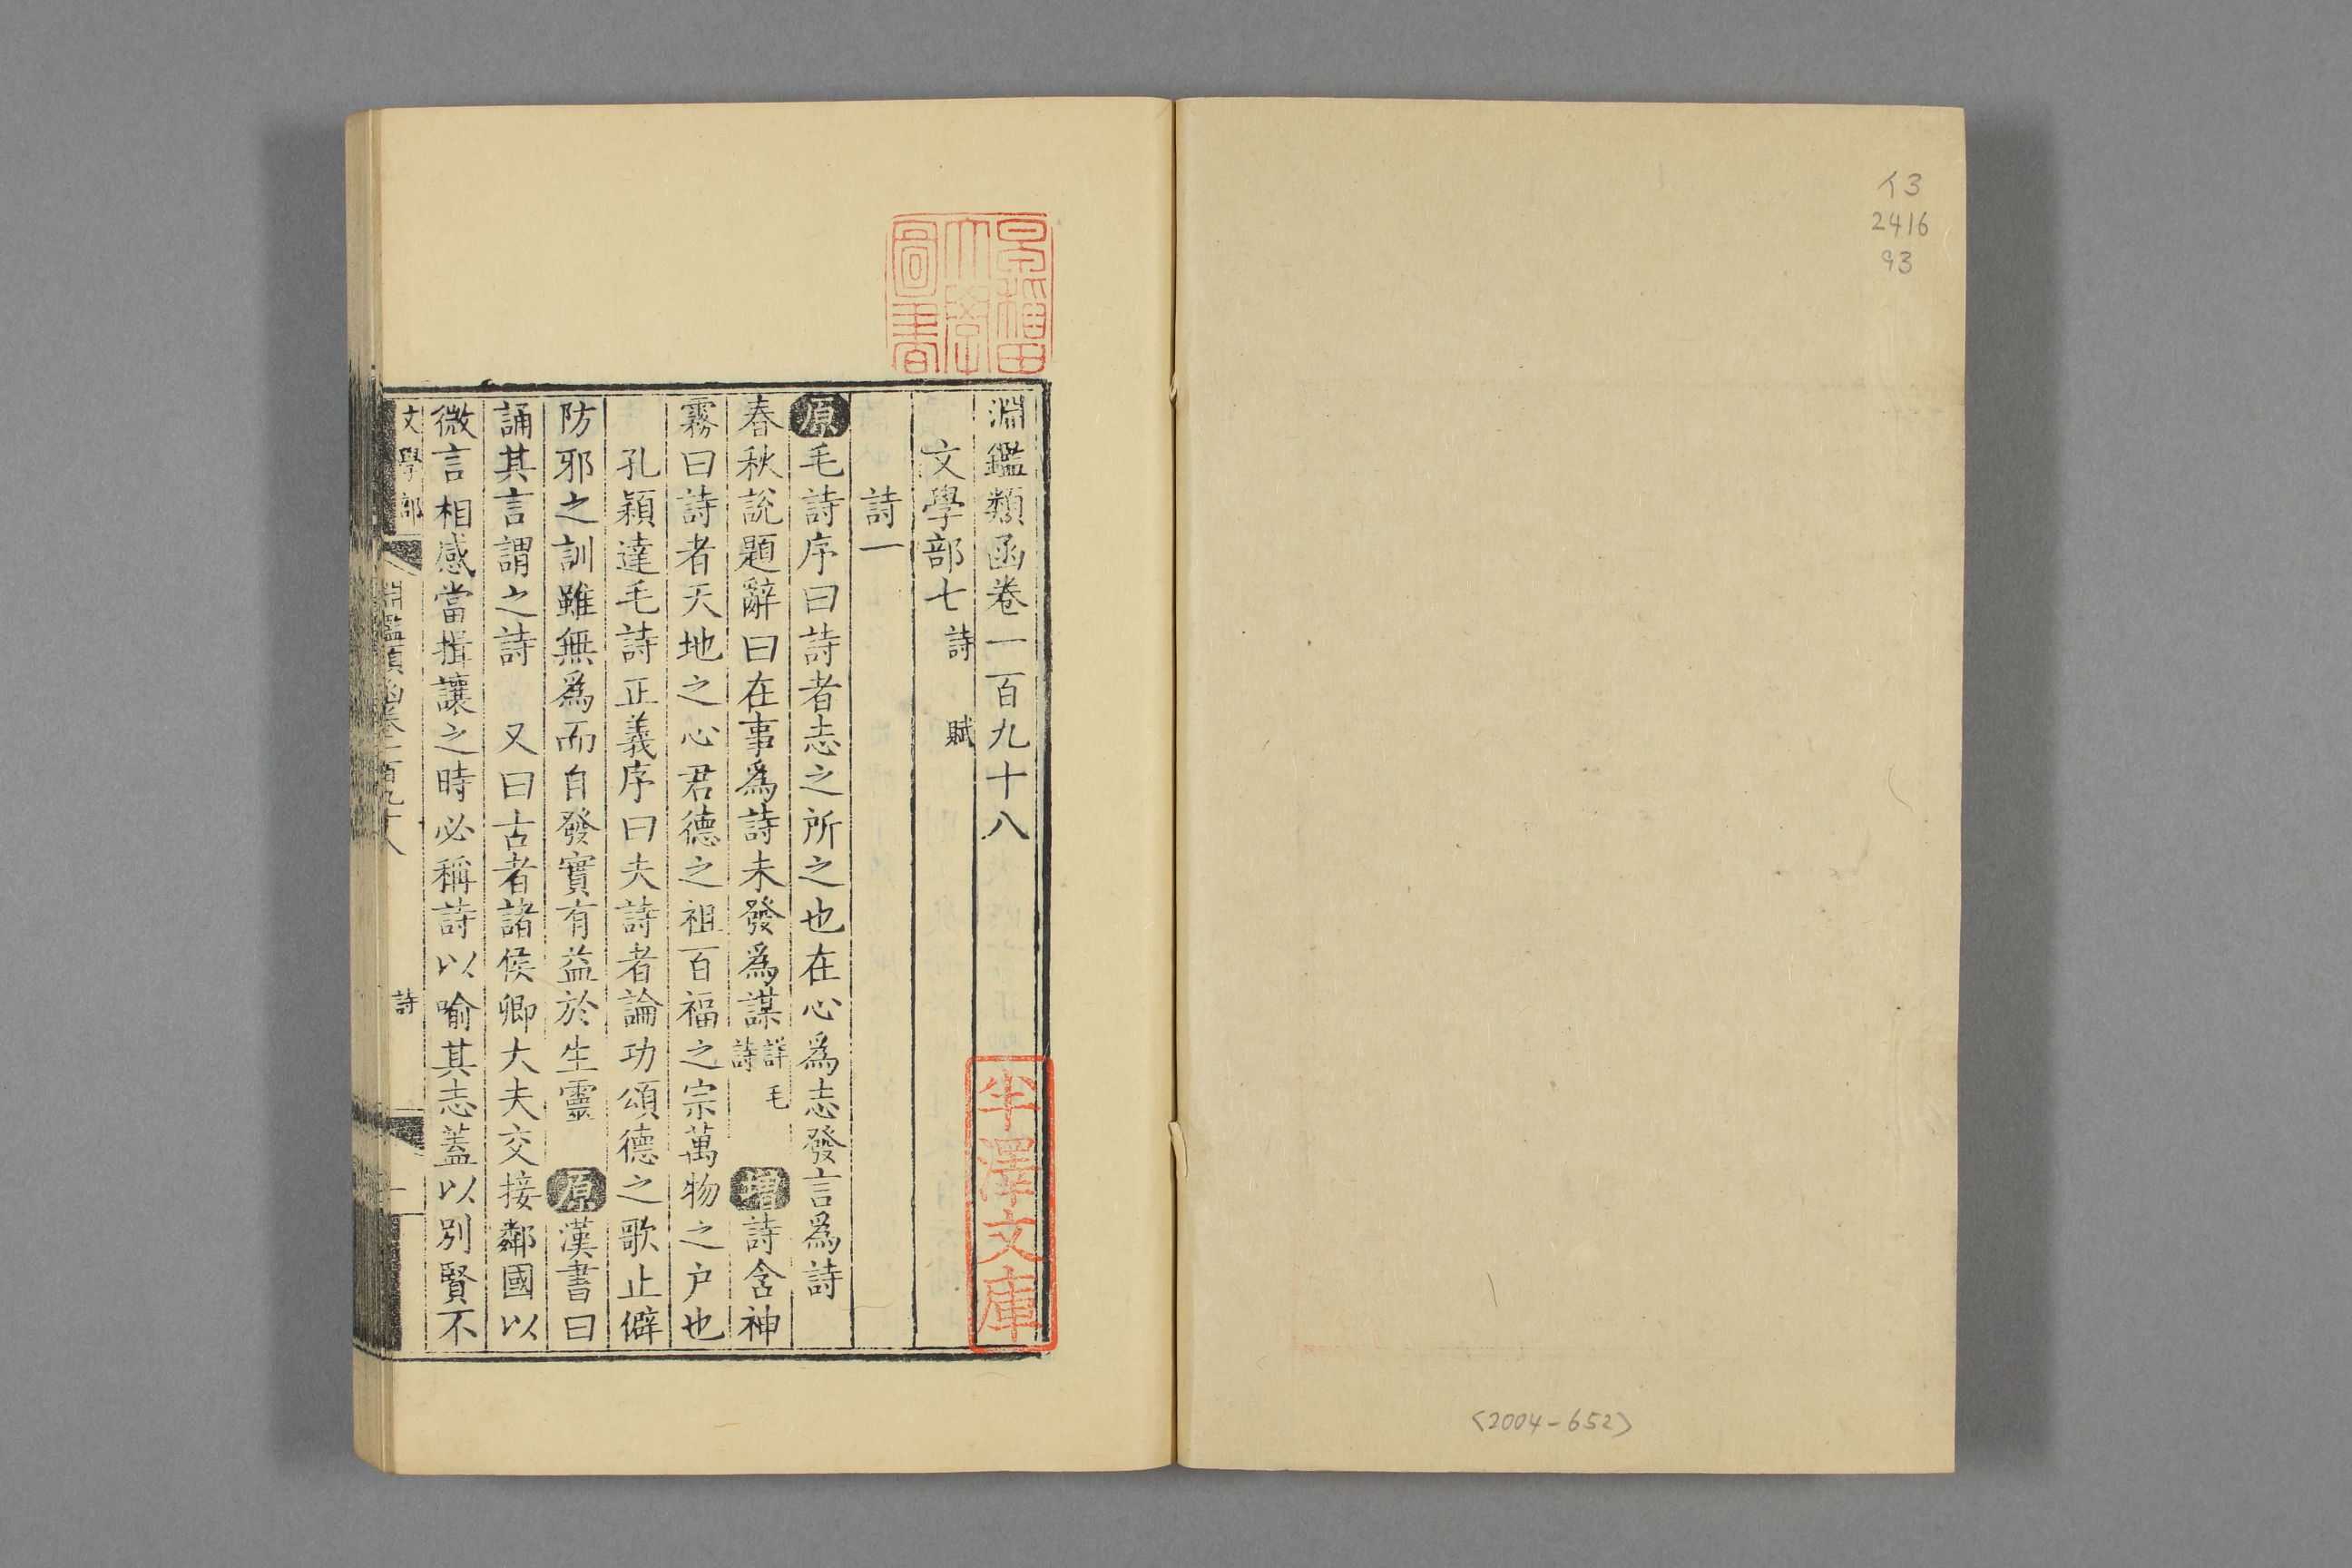 イ3
2416
93
<2004-652>
早稲田
大學
圖書
淵鑑類函卷一百九十八
文學部七 詩 賦
詩一
原毛詩序曰詩者志之所之也在心為志發言為詩
春秋說題辭曰在事為詩未發為謀 詳毛詩 增詩含神
霧曰詩者天地之心君德之祖百福之宗萬物之户也
孔穎達毛詩正義序曰夫詩者論功頌德之歌止僻
防邪之訓雖無為而自發實有益於生靈 原漢書曰
誦其言謂之詩 又曰古者諸侯卿大夫交接鄰國以
微言相感當揖讓之時必稱詩以喻其志蓋以別賢不
文學部 淵鑑類函卷一百九十八 詩 一
半澤文庫